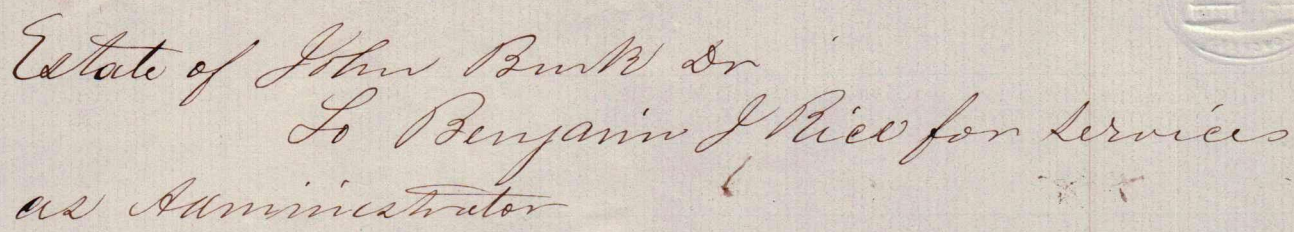 Estate of John Burk Dr
To Benjamin J Rice for services
as Administrator